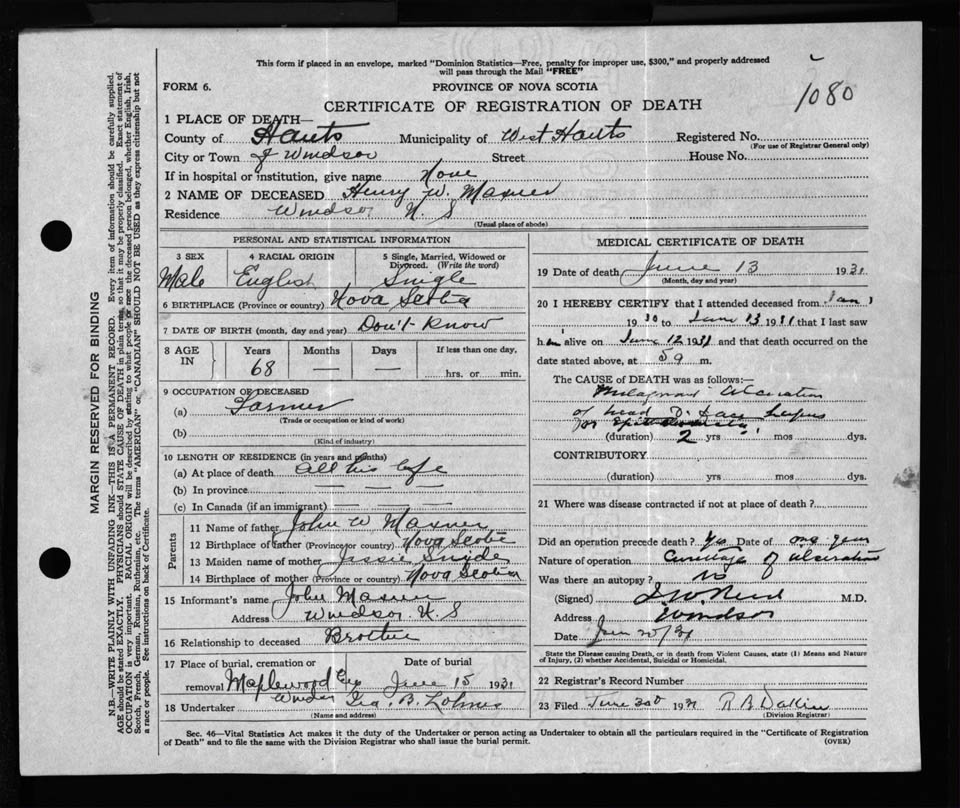 This form if placed in an envelope, marked "Dominion Statistics—Free, penalty for improper use, $300," and properly addressed
will pass through the Mail "FREE"
1080
FORM 6.
PROVINCE OF NOVA SCOTIA
CERTIFICATE OF REGISTRATION OF DEATH
1 PLACE OF DEATH—
County of Hants Municipality of West Hants Registered No.
(For use of Registrar General only)
City or Town of Windsor Street House No.
If in hospital or institution, give name None
2 NAME OF DECEASED Henry W. Maxner
Residence Windsor N. S
(Usual place of abode)
PERSONAL AND STATISTICAL INFORMATION
3 SEX
Male
4 RACIAL ORIGIN
English
5 Single, Married, Widowed or
Divorced. (Write the word)
Single
6 BIRTHPLACE (Province or country) Nova Scotia
7 DATE OF BIRTH (month, day and year) Don't Know
8 AGE IN
Years Months Days If less than one day,
68 — — hrs. or min.
9 OCCUPATION OF DECEASED
(a) Farmer
(Trade or occupation or kind of work)
(b)
(Kind of industry)
10 LENGTH OF RESIDENCE (in years and months)
(a) At place of death all his life
(b) In province — — —
(c) In Canada (if an immigrant) — — —
Parents
11 Name of father John W Maxner
12 Birthplace of father (Province or country) Nova Scotia
13 Maiden name of mother Snider
14 Birthplace of mother (Province or country) Nova Scotia
15 Informant's name John Maxner
Address Windsor N. S
16 Relationship to deceased Brother
17 Place of burial, cremation or Date of burial
removal Maplewood June 15 1931
Windsor
18 Undertaker Geo. B. Lohnes
(Name and address)
MEDICAL CERTIFICATE OF DEATH
19 Date of death June 13 1931
(Month, day and year)
20 I HEREBY CERTIFY that I attended deceased from Jan 1
1930 to June 13 1931 that I last saw
him alive on June 12 1931 and that death occurred on the
date stated above, at 5 a m.
The CAUSE OF DEATH was as follows:—
Malignant ulceration
of head & face Lupus
or
(duration) 2 yrs mos dys.
CONTRIBUTORY
(duration) yrs mos dys.
21 Where was disease contracted if not at place of death?
Did an operation precede death? Yes Date of one year
Nature of operation Curettage of ulceration
Was there an autopsy? No
(Signed) M.D.
Address Windsor
Date
State the Disease causing Death, or in death from Violent Causes, state (1) Means and Nature
of Injury, (2) whether Accidental, Suicidal or Homicidal.
22 Registrar's Record Number
23 Filed June 30 1931 R B Dakin
(Division Registrar)
Sec. 46—Vital Statistics Act makes it the duty of the Undertaker or person acting as Undertaker to obtain all the particulars required in the "Certificate of Registration
of Death" and to file the same with the Division Registrar who shall issue the burial permit. (OVER)
MARGIN RESERVED FOR BINDING
N.B.—WRITE PLAINLY WITH UNFADING INK—THIS IS A PERMANENT RECORD. Every item of information should be carefully supplied.
AGE should be stated EXACTLY. PHYSICIANS should STATE CAUSE OF DEATH in plain terms, so that it may be properly classified. Exact statement of
OCCUPATION is very important. RACIAL ORIGIN will be described by stating to what people or race the deceased person belonged, whether English, Irish,
Scotch, French, German, Russian, Ruthenian, etc. The terms "AMERICAN" or "CANADIAN" SHOULD NOT BE USED as they express citizenship but not
a race or people. See instructions on back of Certificate.